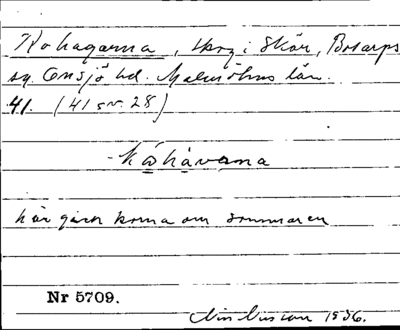 Kohagarna, skog i Skån, Bosarps
sn. Onsjö hd. Malmöhus län.
41. (41 sv. 28)
kohavarna
här gårn korna om sommaren
Nr 5709.
1936.